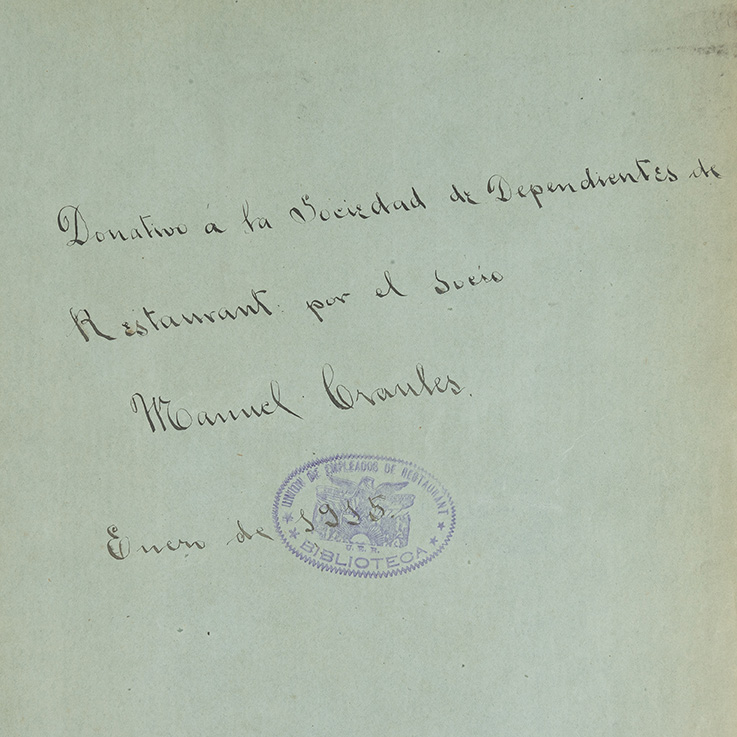 Donativo á la Sociedad de Dependientes de
Restaurant por el socio
Manuel Craules.
Enero de 1915.
UNION DE EMPLEADOS DE RESTAURANT
U.E.R.
BIBLIOTECA